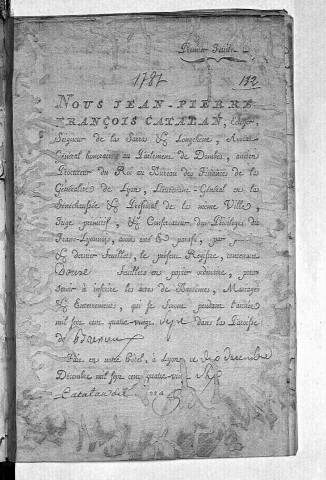 Premier feuillet
1787 112
NOUS JEAN-PIERRE
FRANÇOIS CATALAN, Ecuyer
Seigneur de la Sarra & Longchene, Avocat
Général honoraire au Parlement de Dombes, ancien
Procureur du Roi au Bureau des Finances de la
Généralité de Lyon, Lieutenant-Général en la
Sénéchaussée & Présidial de la même Ville,
Juge primitif, & Conservateur des Privileges du
Franc-Lyonnois, avons coté & parafé, par
& dernier feuillets, le présent Registre, contenant
Douze feuillets en papier ordinaire, pour
servir à inscrire les actes de Baptêmes, Mariages
& Enterremens, qui se feront pendant l'année
mil sept cent quatre vingt sept dans la Paroisse
de
Fait en notre Hôtel, à Lyon, ce
Décembre mil sept cent quatre vingt
Catalan